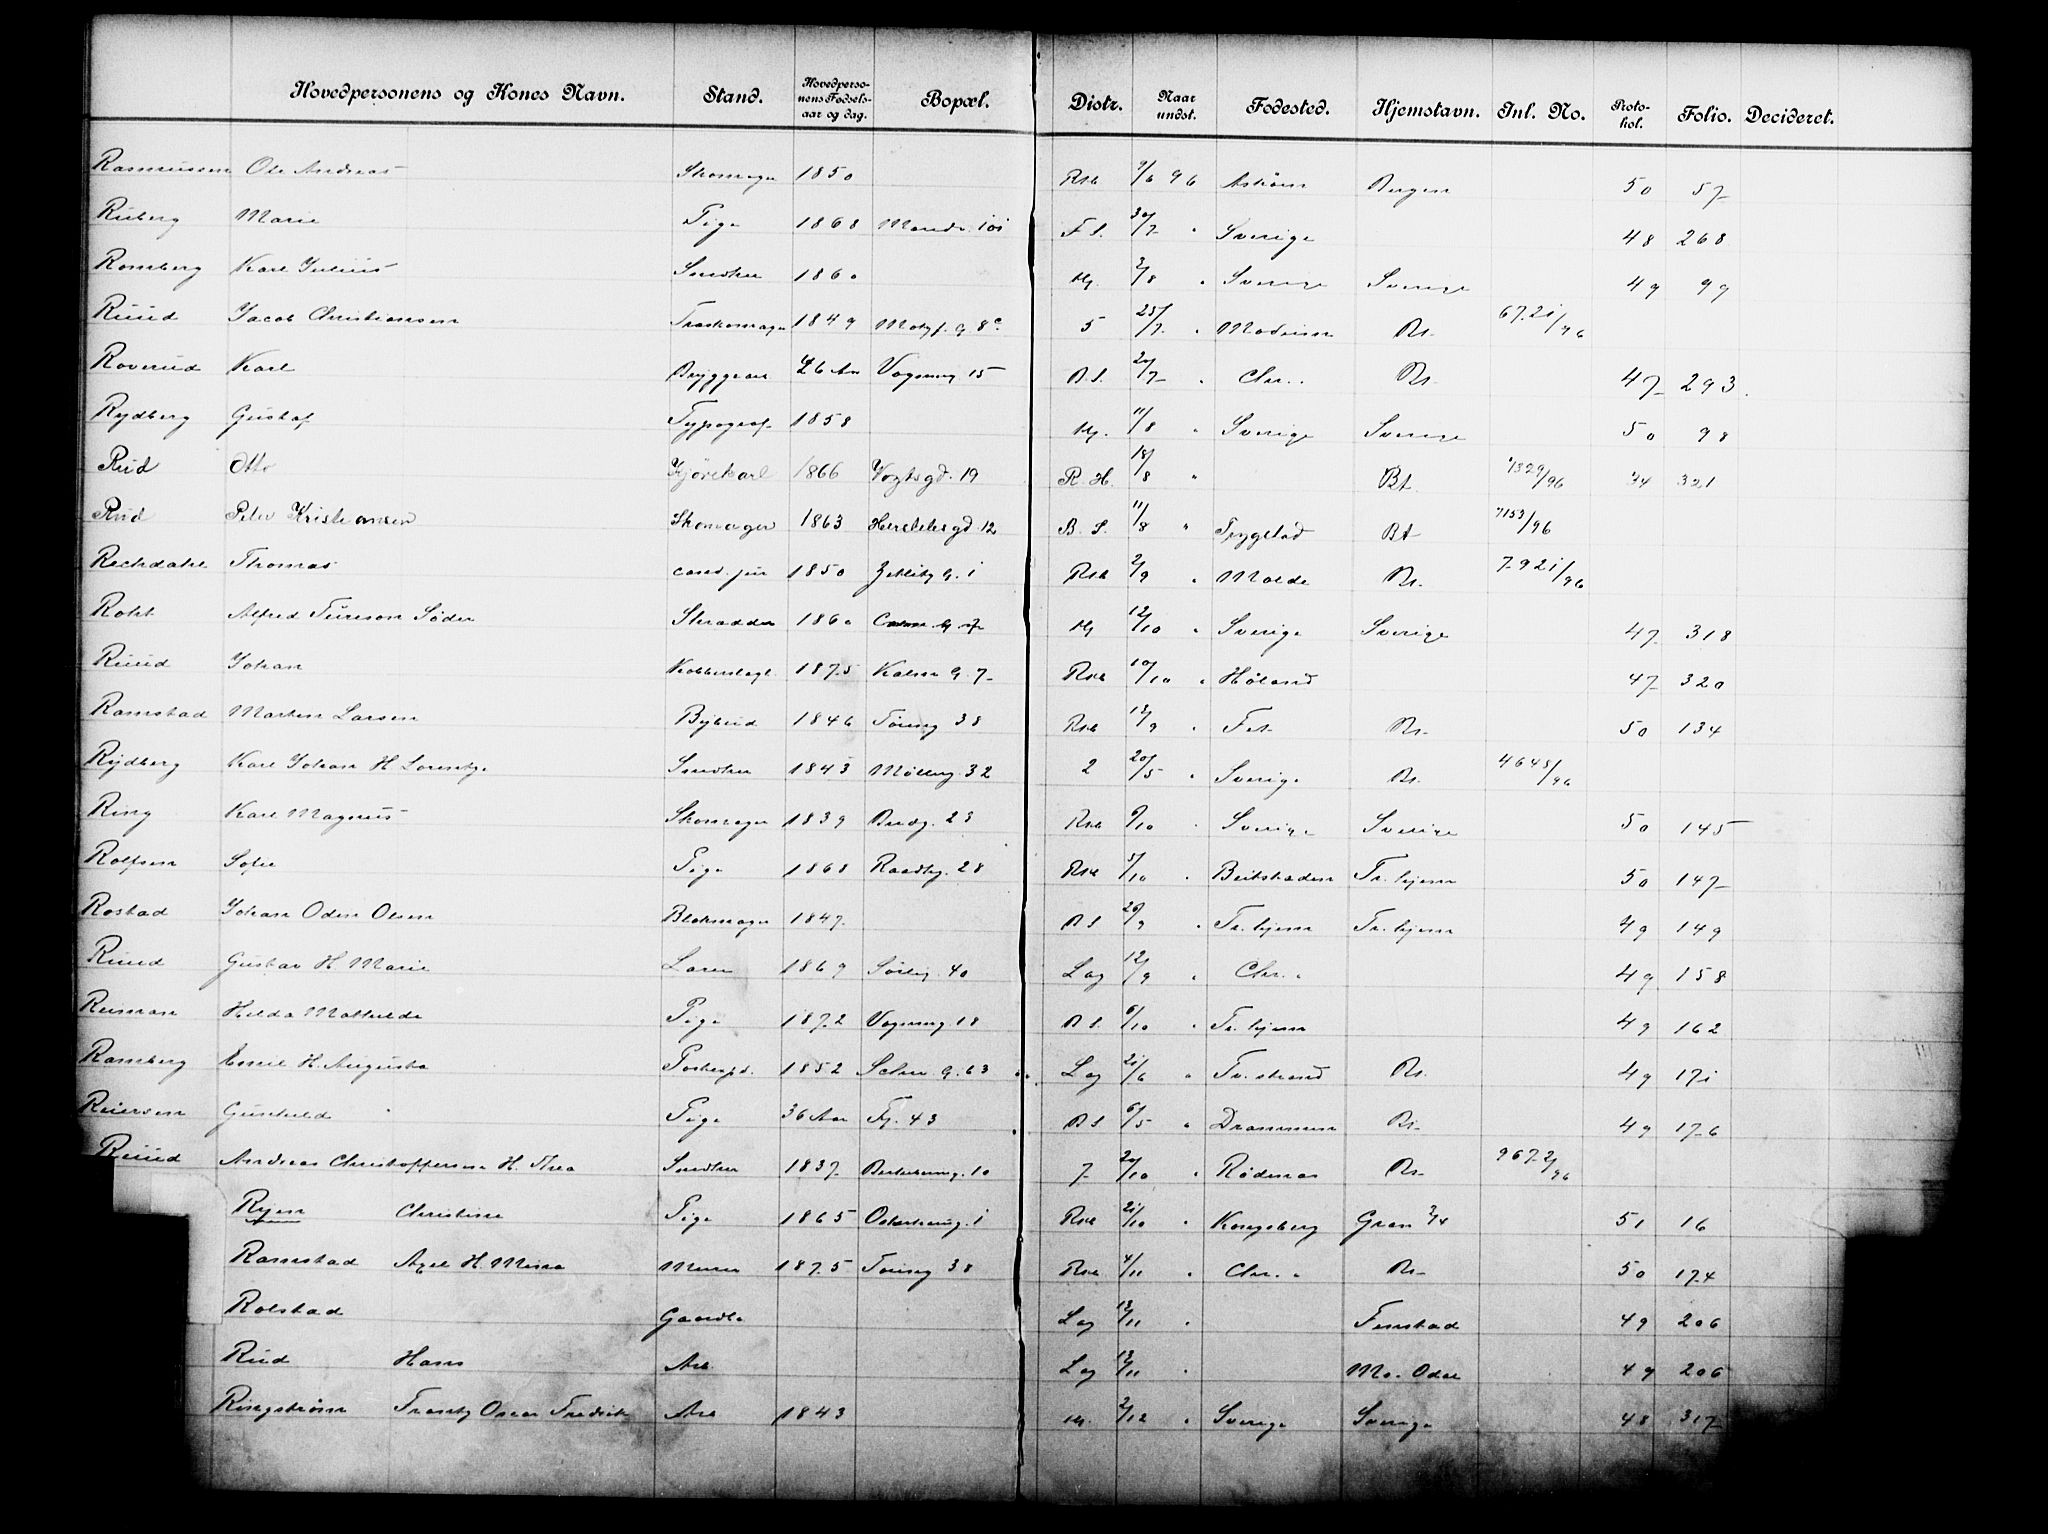 Hovedpersonens og Kones Navn. Stand. Hovedperso-nens Fødsels-aar og dag. Bopæl. Distr. Naar undst. Fødested. Hjemstavn. Inl. No. Proto-kol. Folio. Decideret.
Rasmussen Ole Andreas Skomager 1850 Rsk 9/6 96 Bergen 50 57
Ruberg Marie Pige 1868 Marids. 101 F.S. 30/7 " Sverige 48 268
Romberg Karl Julius Snedker 1860 Hj. 3/8 " Sverige Sverige 49 99
Ruud Jacob Christiansen Træskomager 1849 Motzf. g. 8c 5 25/7 " Modum Bt. 6721/96
Roverud Karl Bryggearb 26 Aar Vognmg. 15 B.S. 20/7 " Chr.a Bt. 47 293.
Rydberg Gustaf Typograf 1858 Hj. 11/8 " Sverige Sverige 50 98
Rud Otto Kjørekarl 1866 Vogtsgd. 19 R.H. 18/8 " Bt. 7329/96 44 321
Rud Peder Kristiansen Skomager 1863 Herslebsgd 12 B.S. 11/8 " Trygstad Bt 7153/96
Reckdahl Thomas cand. jur 1850 Zetlitz g. 1 Rsk 2/9 " Molde Bt. 7921/96
Roht Alfred Tureson Söder Skrædder 1860 Hj 12/10 " Sverige Sverige 47 318
Ruud Johan Kobberslagr. 1875 Kalsm g. 7 Rsk 10/10 " Høland 47 320
Ramstad Morten Larsen Bybud 1846 Toieng 38 Rsk 12/9 " Fet Bt. 50 134
Rydberg Karl Johan H. Lorentze Snedker 1843 Møllerg. 32 2 20/5 " Sverige Bt. 4648/96
Ring Karl Magnus Skomager 1839 Brug. 23 Rsk 9/10 " Sverige Sverige 50 145
Rolfsen Sofie Pige 1868 Raadhg. 28 Rsk 5/10 " Beitstaden Tr.hjem 50 147
Rostad Johan Odin Olsen Blokmager 1847. B S 26/9 " Tr.hjem Tr.hjem 49 149
Ruud Gustav H. Marie Laxer 1869 Sørlig. 40 Lag 12/9 " Chr.a 49 158
Reiman Hilda Mathilde Pige 1872 Vognmg. 18 B.S. 6/10 " Tr.hjem 49 162
Ramberg Emil H. Augusta Postexpd. 1852 Schw g. 63 Lag 21/6 " Tv.strand Bt. 49 171
Reiersen Gunhild Pige 36 Aar Fj. 43 B S 6/5 " Drammen Bt. 49 176
Ruud Andreas Christoffersen H. Thea Snedker 1837 10 7 20/10 " Rødenes Bt. 9672/96
Ryen Christine Pige 1865 Osterhausg. 1 Rsk 21/10 " Kongsberg Gran 2/4 51 16
Ramstad Axel H. Mina Murer 1875 Toieng 38 Rsk 4/11 " Chr.a Bt. 50 174
Rolstad Gaardbr Lag 13/11 " 49 206
Rud Hans Arb. Lag 13/11 " N. Odal 49 206
Ringstrøm Frantz Oscar Fredrik Arb 1843 Hj. 2/12 " Sverige Sverige 48 317